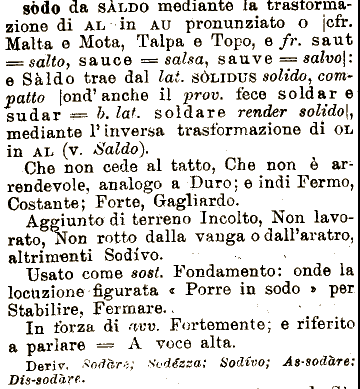 sòdo da SÀLDO mediante la trasforma-
zione di AL in AU pronunziato o |cfr.
Malta e Mota, Talpa e Topo, e fr. saut
= salto, sauce = salsa, sauve = salvo|:
e Sàldo trae dal lat. SÒLIDUS solido, com-
patto |ond'anche il prov. fece soldar e
sudar = b. lat. soldare render solido|,
mediante l'inversa trasformazione di OL
in AL (v. Saldo).
Che non cede al tatto, Che non è ar-
rendevole, analogo a Duro; e indi Fermo,
Costante; Forte, Gagliardo.
Aggiunto di terreno Incolto, Non lavo-
rato, Non rotto dalla vanga o dall'aratro,
altrimenti Sodívo.
Usato come sost. Fondamento: onde la
locuzione figurata « Porre in sodo » per
Stabilire, Fermare.
In forza di avv. Fortemente; e riferito
a parlare = A voce alta.
Deriv. Sodàre; Sodézza; Sodívo; As-sodàre;
Dis-sodàre.